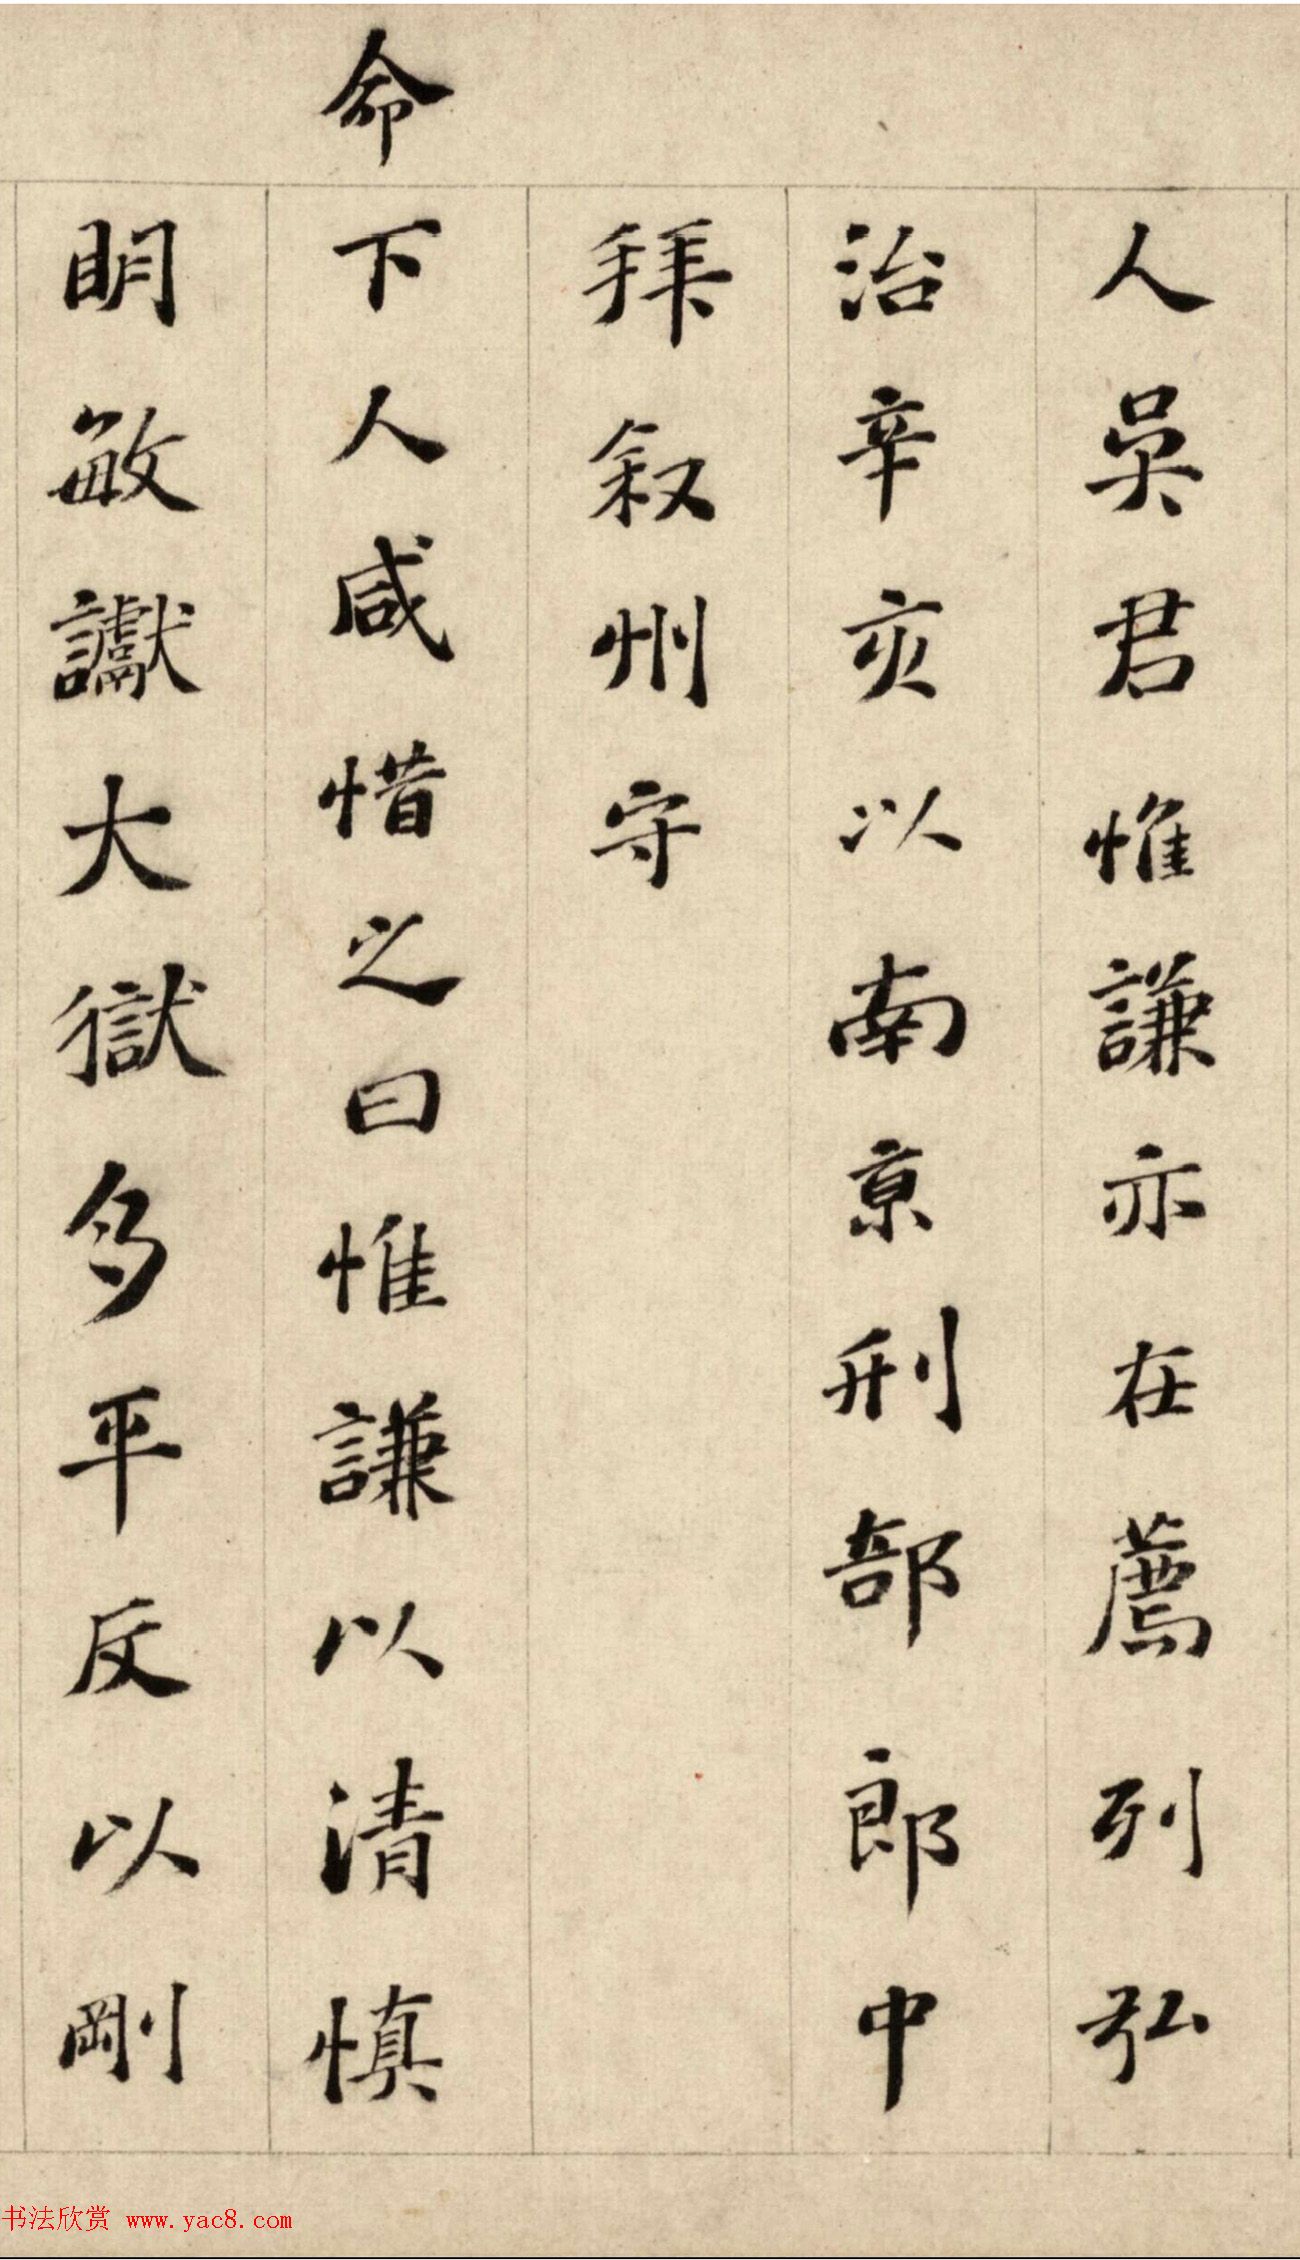 人吳君惟謙亦在薦列弘
治辛亥以南京刑部郎中
拜叙州守
命
下人咸惜之曰惟謙以清慎
明敏讞大獄多平反以剛
书法欣赏 www.yac8.com